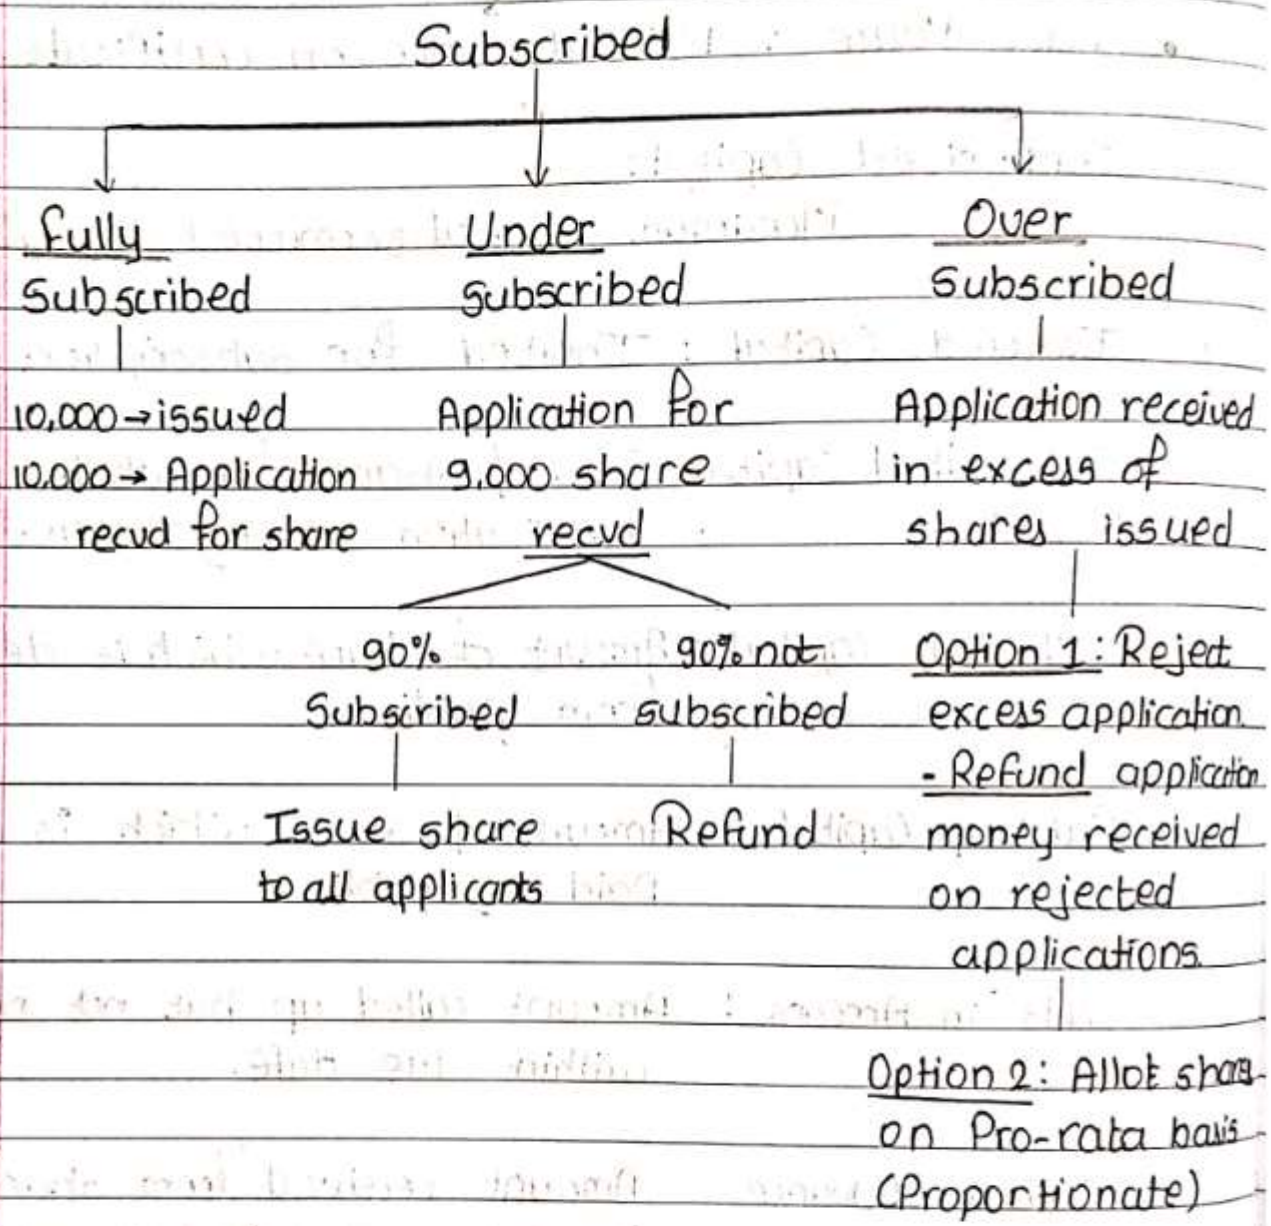 Subscribed
Fully
Subscribed
10,000→issued
10,000→ Application
recvd for share
Under
subscribed
Application for
9,000 share
recvd
90%
Subscribed
Issue share
to all applicants
90% not
subscribed
Refund
Over
Subscribed
Application received
in excess of
shares issued
Option 1: Reject
excess application
- Refund application
money received
on rejected
applications.
Option 2: Allot share
on Pro-rata basis
(Proportionate)